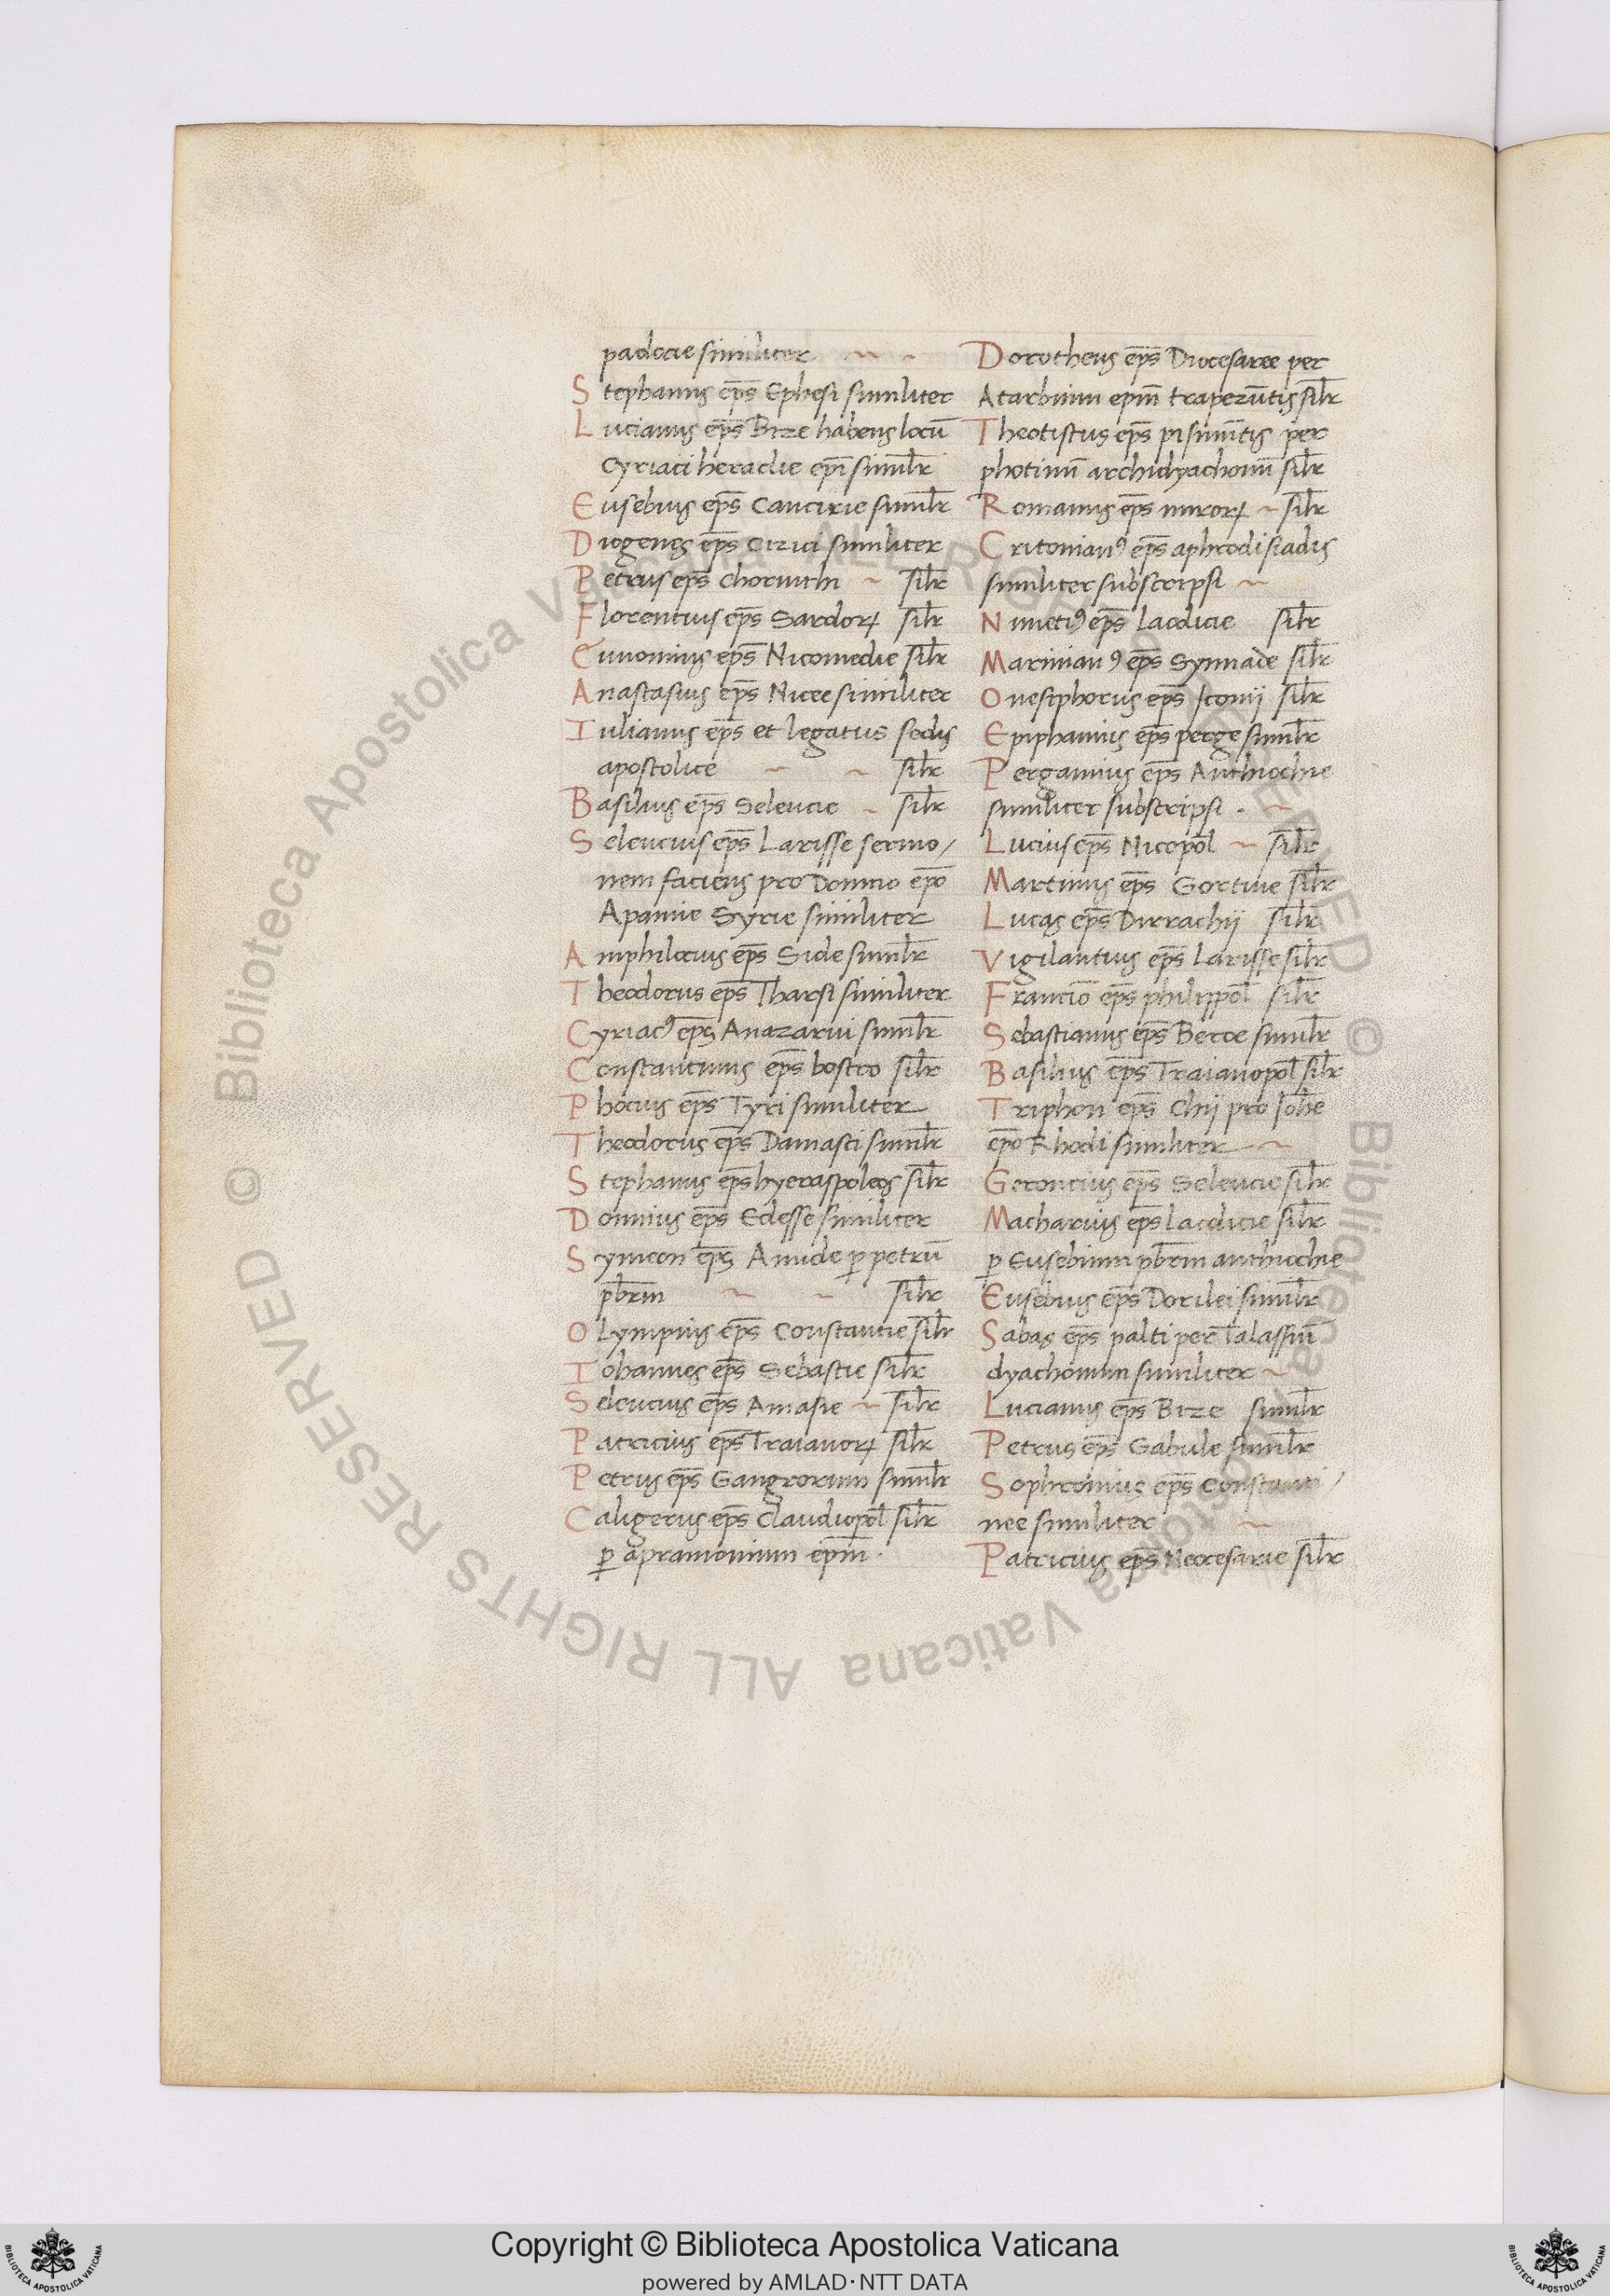 padocie similiter
Stephanus ep̄s Ephesi similiter
Lucianus ep̄s Bize habens locū
Cyriaci heraclie ep̄i simil̄r
Eusebius ep̄s Cancirie simil̄r
Diogenes ep̄s Cizici similiter
Petrus ep̄s chorinthi sil̄r
Florentius ep̄s Sardoꝝ sil̄r
Eunomius ep̄s Nicomedie sil̄r
Anastasius ep̄s Nicee similiter
Iulianus ep̄s et legatus sedis
apostolice sil̄r
Basilius ep̄s Seleucie sil̄r
Seleucius ep̄s Larisse sermo/
nem faciens pro Domno ep̄o
Apamie Syrie similiter
Amphilocius ep̄s Side simil̄r
Theodorus ep̄s Tharsi similiter
Cyriacꝰ ep̄s Anazarui simil̄r
Constantinus ep̄s bostro sil̄r
Phocius ep̄s Tyri similiter
Theodorus ep̄s Damasci simil̄r
Stephanus ep̄s hyeraspoleos sil̄r
Domnius ep̄s Edesse similiter
Symeon ep̄s Amide ꝑ petrū
pb̄rm sil̄r
Olympius ep̄s Constancie sil̄r
Iohannes ep̄s Sebastie sil̄r
Seleucius ep̄s Amasie sil̄r
Patricius ep̄s Traianoꝝ sil̄r
Petrus ep̄s Gangrorum simil̄r
Caligerus ep̄s claudiopol̄ sil̄r
ꝑ apramonium ep̄m.
Dorotheus ep̄s Diocesaree per
Atarbium epm̄ trapezūtis sil̄r
Theotistus ep̄s pisinūtis per
photinū archidyachonū sil̄r
Romanus ep̄s miroꝝ sil̄r
Critonianꝰ ep̄s aphrodisiadis
similiter subscripsi
Nunetiꝰ ep̄s laodicie sil̄r
Marinianꝰ ep̄s Synnade sil̄r
Onesiphorus ep̄s Iconij sil̄r
Epiphanius ep̄s perge simil̄r
Pergamius ep̄s Anthiochie
similiter subscripsi .
Lucius ep̄s Nicopol̄ sil̄r
Martinus ep̄s Gortine sil̄r
Lucas ep̄s Dirrachij sil̄r
Vigilantius ep̄s Larisse sil̄r
Franciō ep̄s philippol̄ sil̄r
Sebastianus ep̄s Beroe simil̄r
Basilius ep̄s Traianopol̄ sil̄r
Triphon ep̄s Chij pro Ioh̄e
ep̄o Rhodi similiter
Geroncius ep̄s Seleucie sil̄r
Macharius ep̄s laodicie sil̄r
ꝑ Eusebium pb̄rm anthiochie
Eusebius ep̄s Dorilei simil̄r
Sabas ep̄s palti per Talassiū
dyachonum similiter
Lucianus ep̄s Bize simil̄r
Petrus ep̄s Gabule simil̄r
Sophronius ep̄s Constanti/
nee similiter
Patricius ep̄s Neocesarie sil̄r
© Biblioteca Apostolica Vaticana ALL RIGHTS RESERVED © Biblioteca Apostolica Vaticana ALL RIGHTS RESERVED
Copyright © Biblioteca Apostolica Vaticana
powered by AMLAD·NTT DATA
BIBLIOTECA APOSTOLICA VATICANA
BIBLIOTECA APOSTOLICA VATICANA